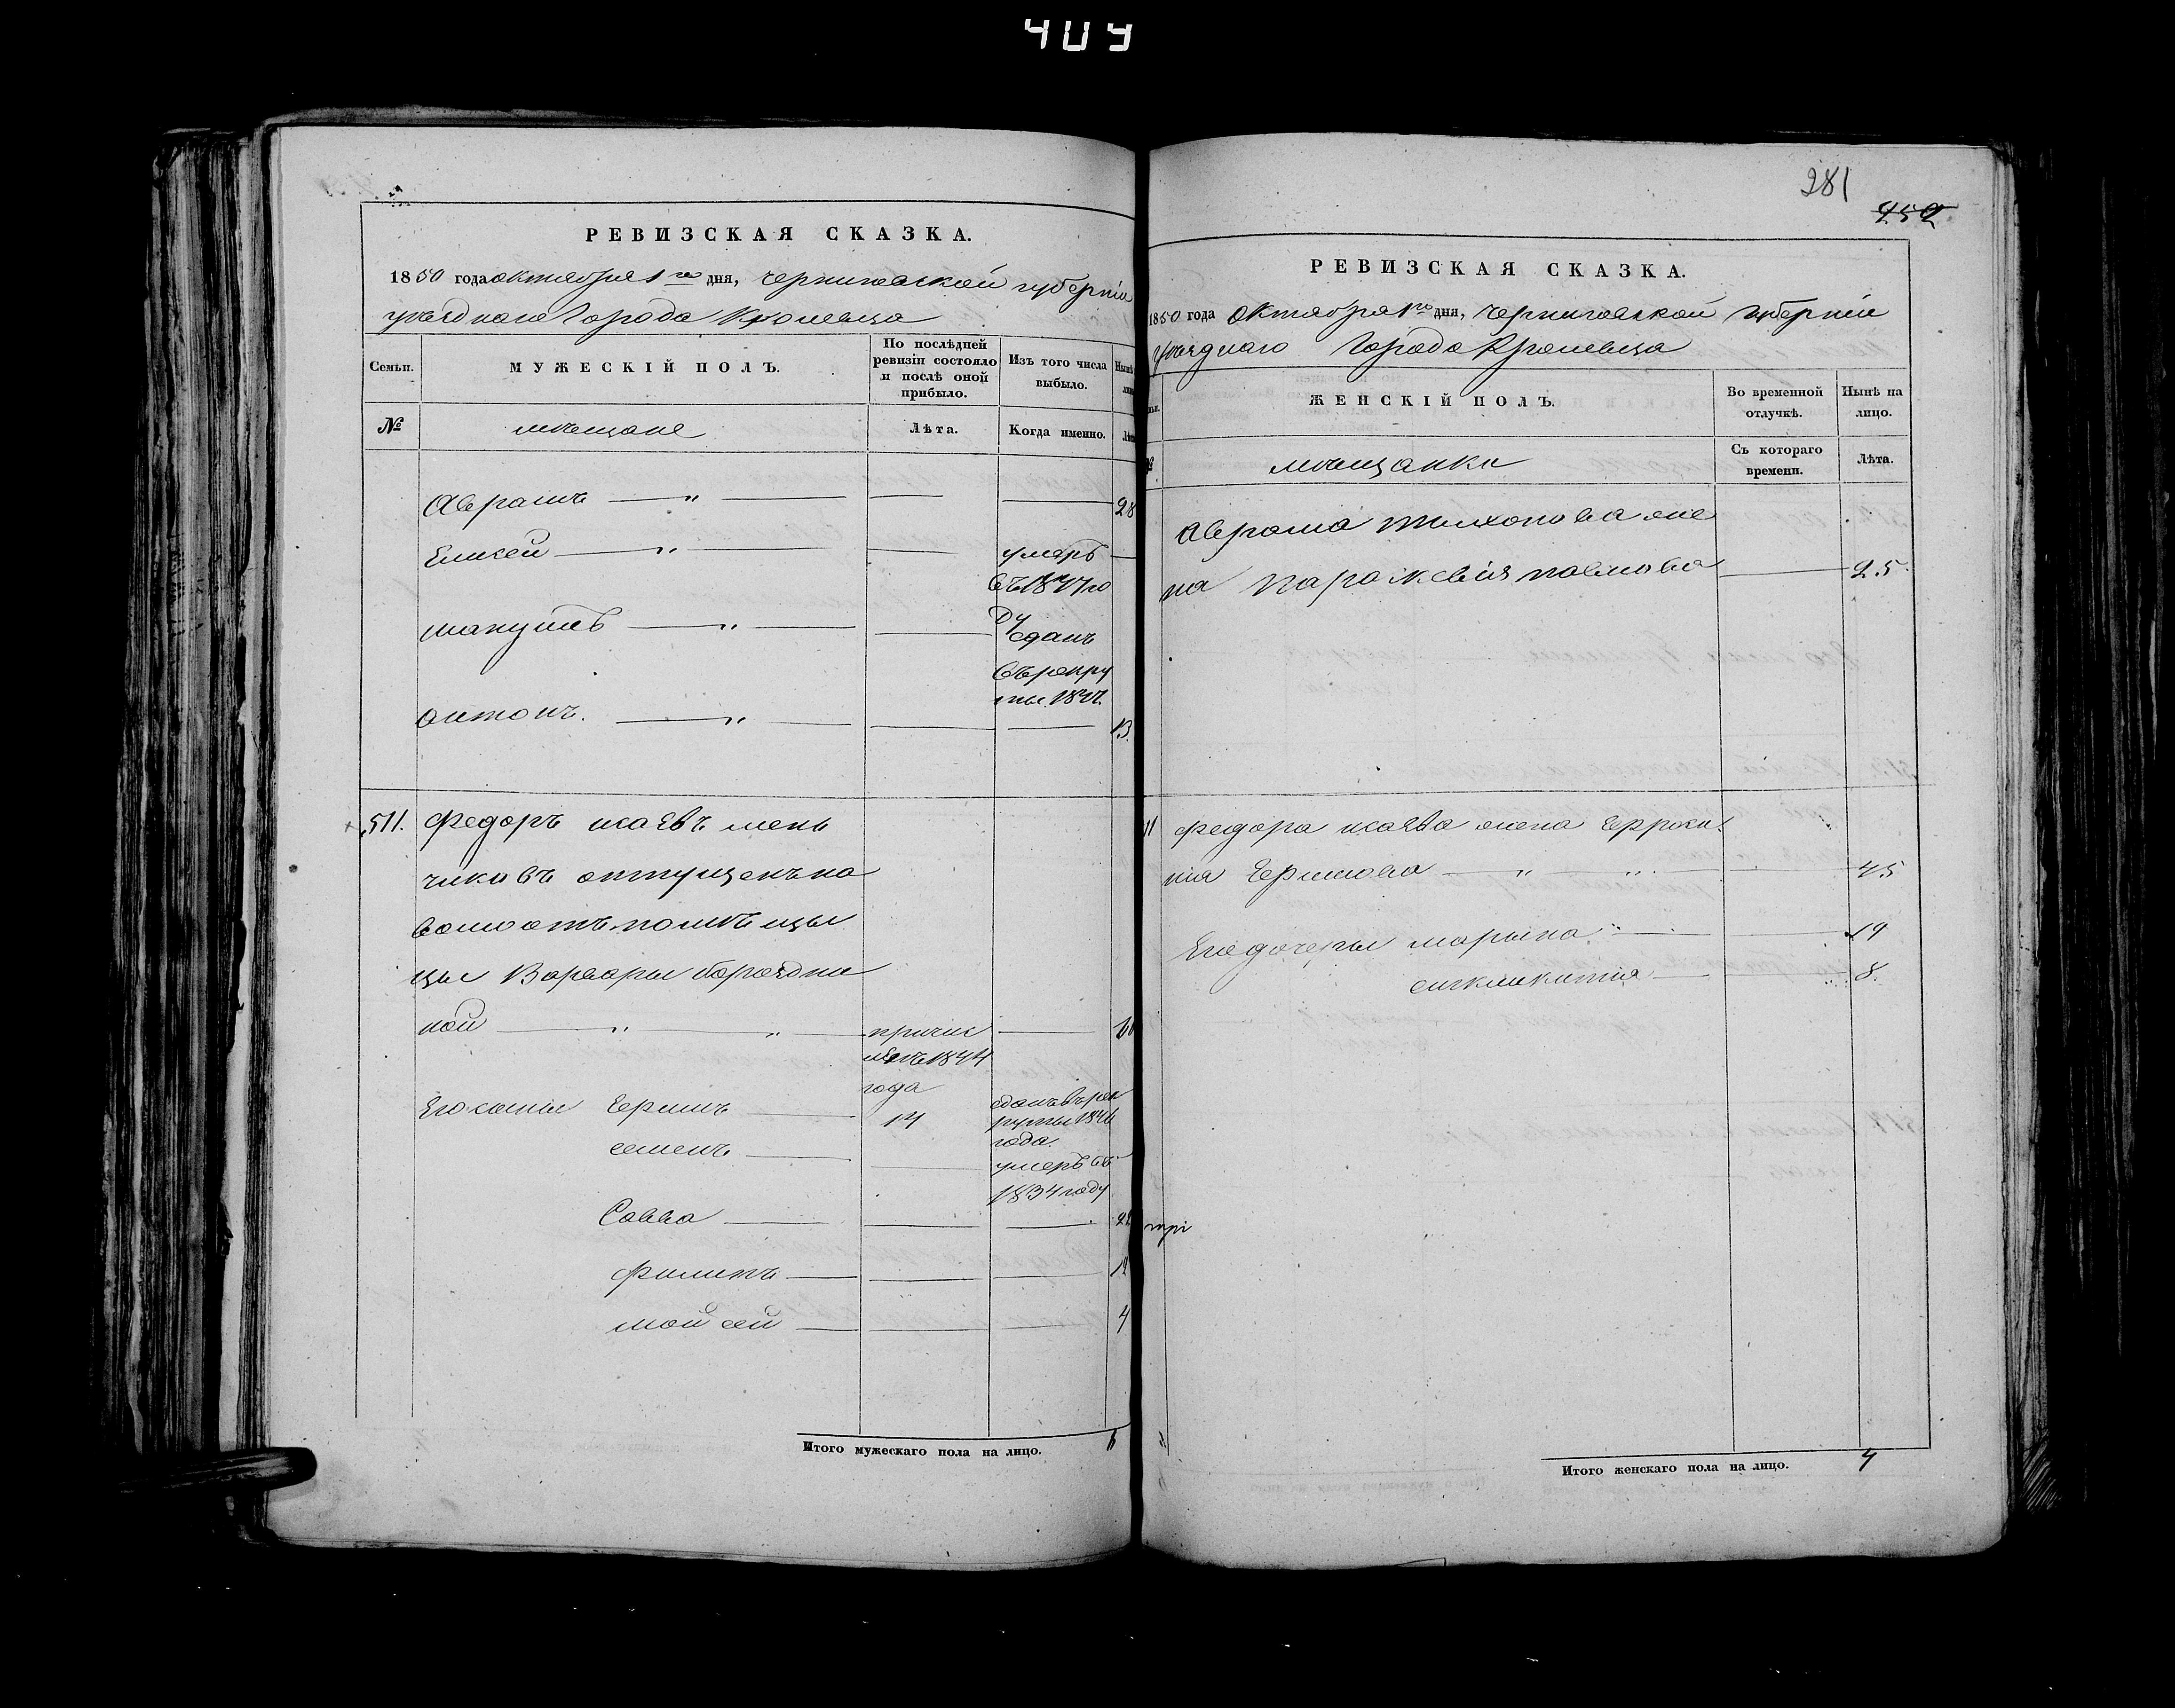 409
РЕВИЗСКАЯ СКАЗКА.
1850 года октября 1го дня, черниговской губерніи
уѣзднаго города Кролевца
Семьи.
МУЖЕСКІЙ ПОЛЪ.
По послѣдней ревизіи состояло и послѣ оной прибыло.
Изъ того числа выбыло.
Нынѣ
№
мѣщане
Лѣта.
Когда именно.
Лѣта
Аврамъ — " — 28
Елисей — " — умеръ
въ 1847 го
ду
— " — сданъ
въ рекру
ты 184
антонъ. — " — 13.
511. Федоръ исаевъ мень
чиковъ отпущенъ на
волю отъ помѣщи
цы Варвары бороздни
ной — " — " — причис
ленъ 1844
года
Его сыны Ефимъ — 14 сданъ въ рек
руты 1846
года.
семенъ — умеръ въ
1834 году
Савва — 21
филипъ — 12
мойсей — 4
Итого мужескаго пола на лицо. 6
281
РЕВИЗСКАЯ СКАЗКА.
1850 года октября 1го дня, черниговской губерніи
уѣзднаго города Кролевца
ЖЕНСКІЙ ПОЛЪ.
Во временной отлучкѣ.
Нынѣ на лицо.
мѣщанки
Съ котораго времени.
Лѣта.
аврама тихонова же
на параскевія павлова — 25.
11 федора исаева жена Ефроси
нія Ефимова — " — " — 45
Его дочеры марына — 19
синкликитія — 8.
три
Итого женскаго пола на лицо. 4